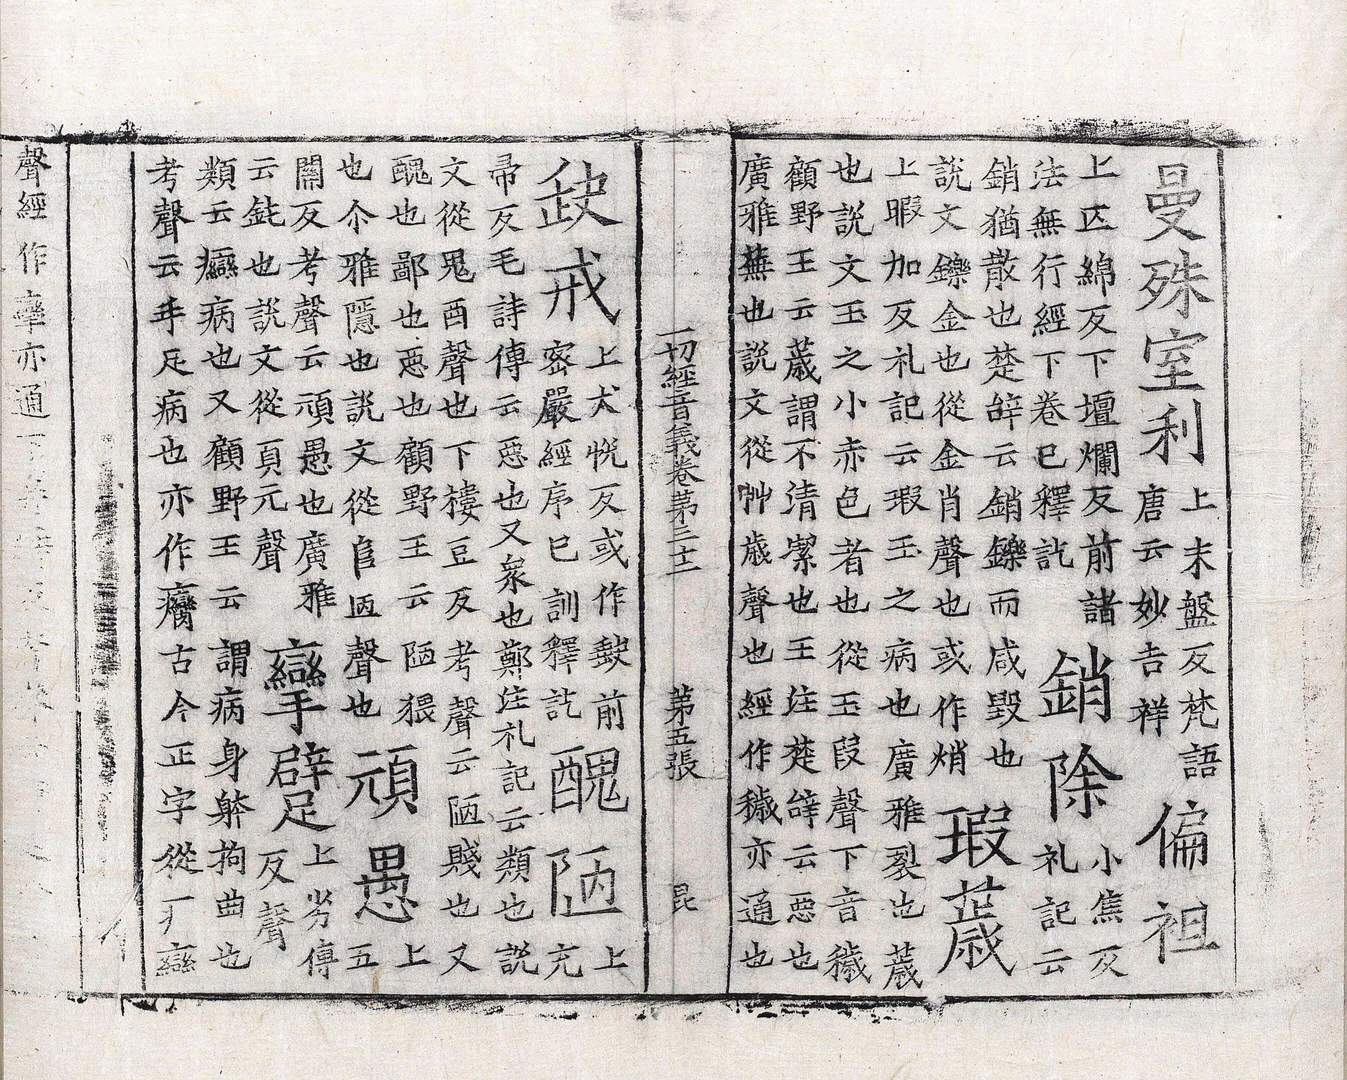 曼殊室利
上末盤反梵語
唐云妙吉祥
偏袒
上匹綿反下壇爛反前諸
法無行經下卷已釋訖
銷除
小焦反
礼記云
銷猶散也楚辝云銷鑠而咸毀也
說文鑠金也從金肖聲也或作焇
瑕薉
上暇加反礼記云瑕玉之病也廣雅裂也薉
也說文玉之小赤色者也從玉叚聲下音穢
顧野王云薉謂不清潔也王注楚辝云惡也
廣雅蕪也說文從艸歲聲也經作穢亦通也
一切經音義卷第三十二 第五張 昆
缺戒
上犬恱反或作 前
密嚴經序已訓釋訖
醜陋
上
充
帚反毛詩傳云惡也又衆也鄭注礼記云類也說
文從鬼酉聲也下樓豆反考聲云陋賤也又
醜也鄙也惡也顧野王云陋猥
也尒雅隱也說文從𨸏㔷聲也
頑愚
上
五
關反考聲云頑愚也廣雅
云鈍也說文從頁元聲
攣躄
上劣傳
反聲
類云癴病也又顧野王云謂病身躰拘曲也
考聲云手足病也亦作癵古今正字從疒臠
聲經作孿亦通下